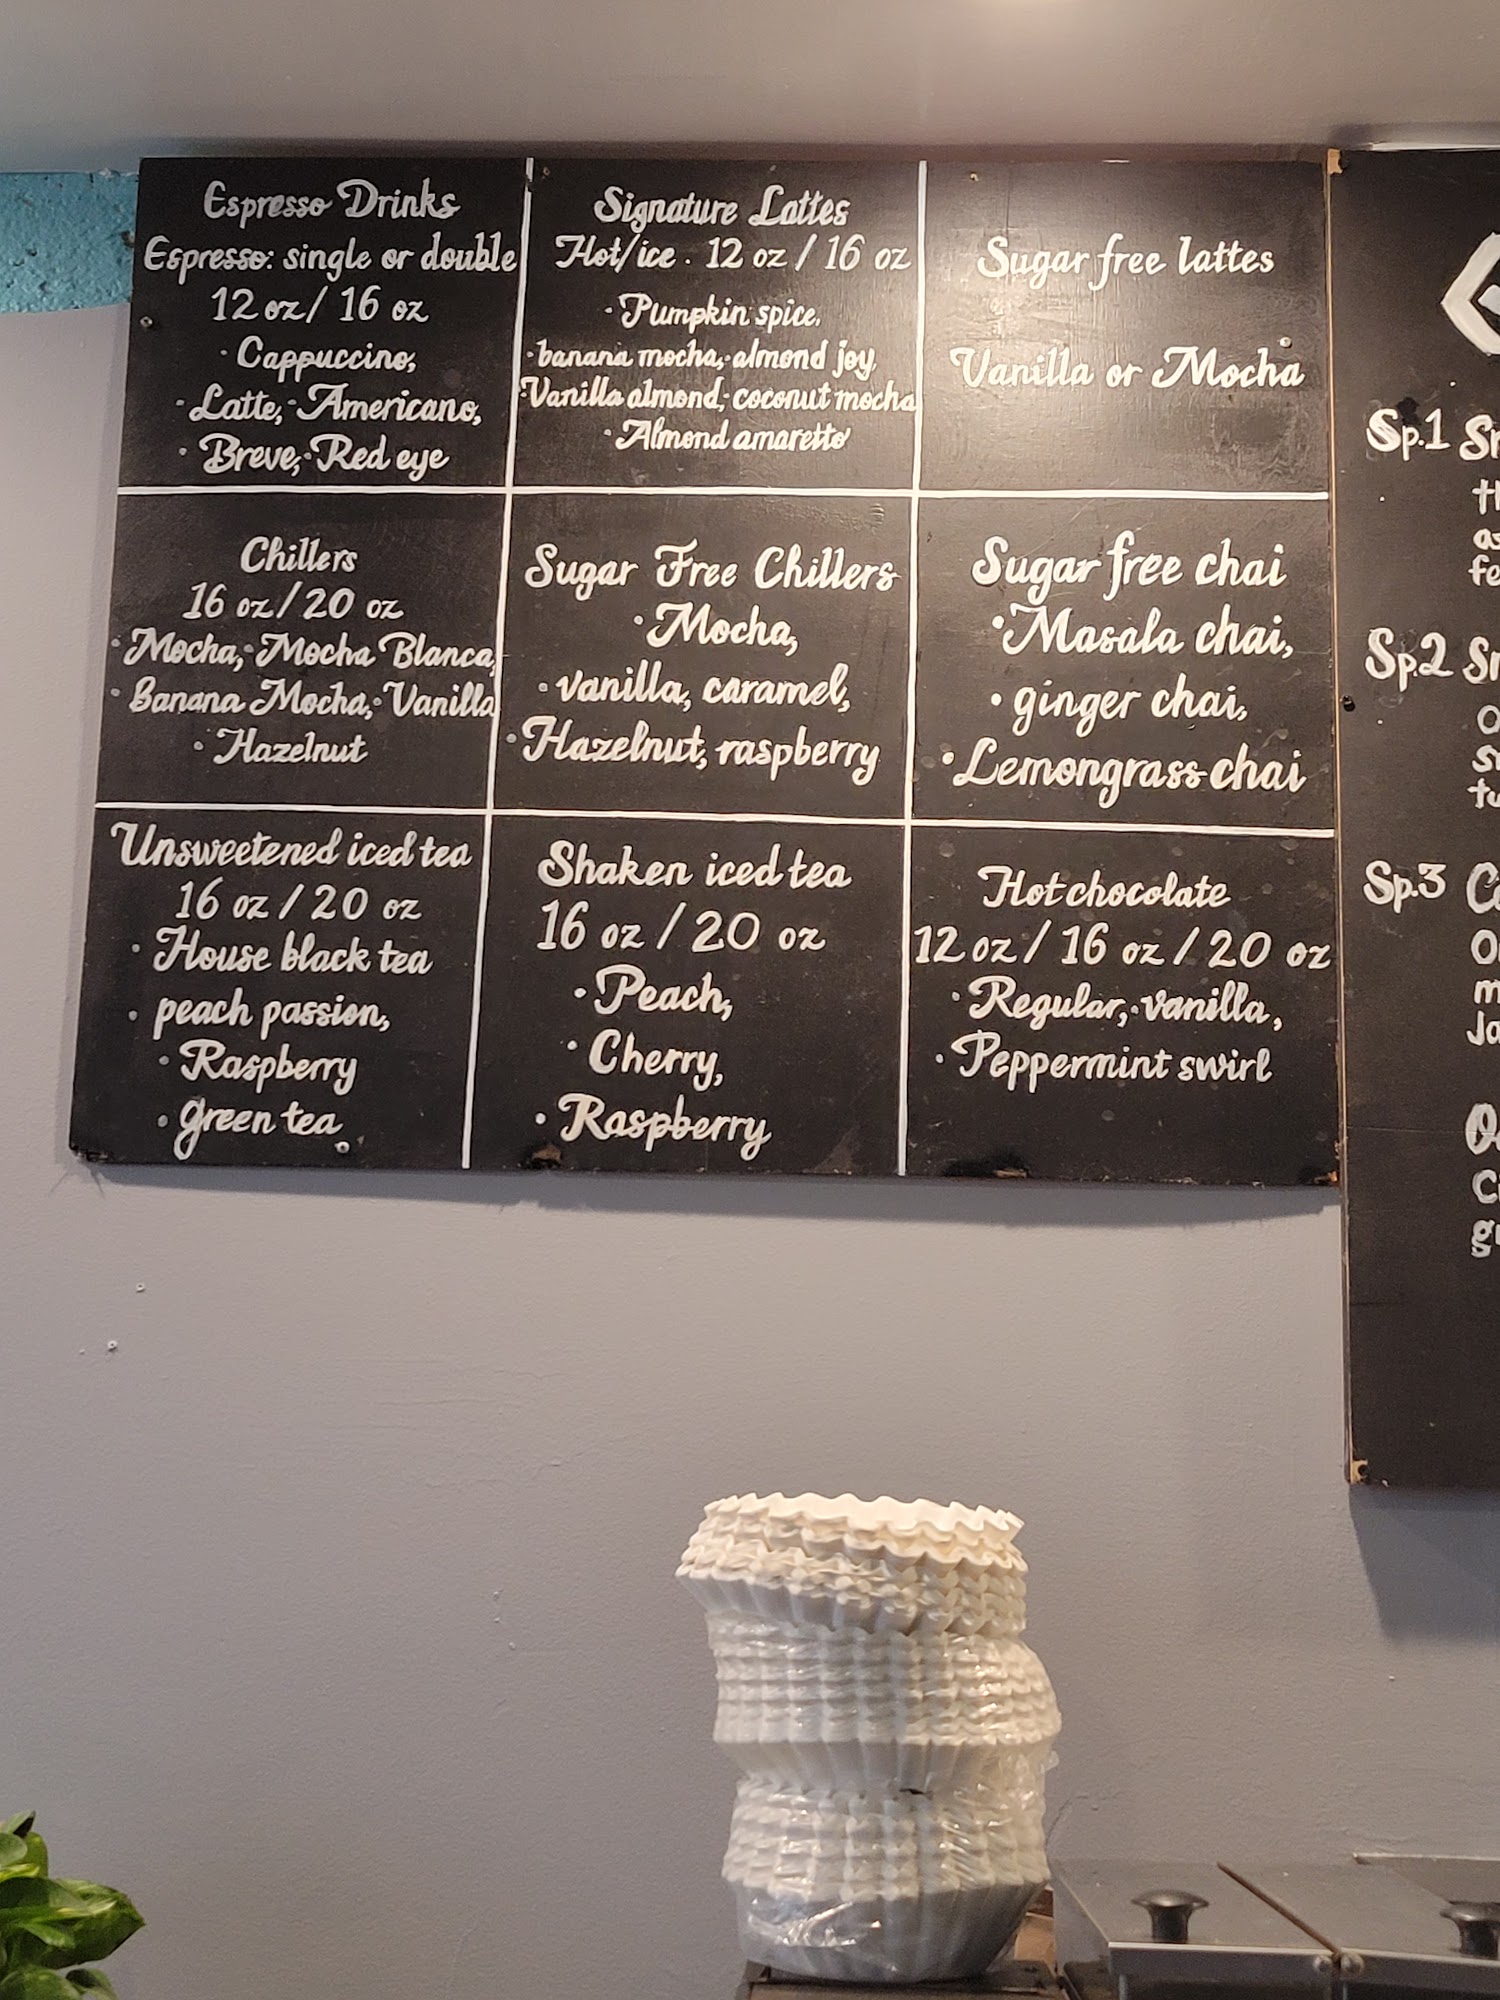 Espresso Drinks
Espresso: single or double
12 oz / 16 oz
· Cappuccino,
· Latte, · Americano,
· Breve, · Red eye
Signature Lattes
Hot/ice . 12 oz / 16 oz
· Pumpkin spice,
· banana mocha, · almond joy,
· Vanilla almond, · coconut mocha
· Almond amaretto
Sugar free lattes
Vanilla or Mocha
Chillers
16 oz / 20 oz
· Mocha, · Mocha Blanca,
· Banana Mocha, · Vanilla
· Hazelnut
Sugar Free Chillers
· Mocha,
· vanilla, caramel,
· Hazelnut, raspberry
Sugar free chai
· Masala chai,
· ginger chai,
· Lemongrass chai
Unsweetened iced tea
16 oz / 20 oz
· House black tea
· peach passion,
· Raspberry
· green tea
Shaken iced tea
16 oz / 20 oz
· Peach,
· Cherry,
· Raspberry
Hot chocolate
12 oz / 16 oz / 20 oz
· Regular, · vanilla,
· Peppermint swirl
Sp.1
Sp.2
Sp.3